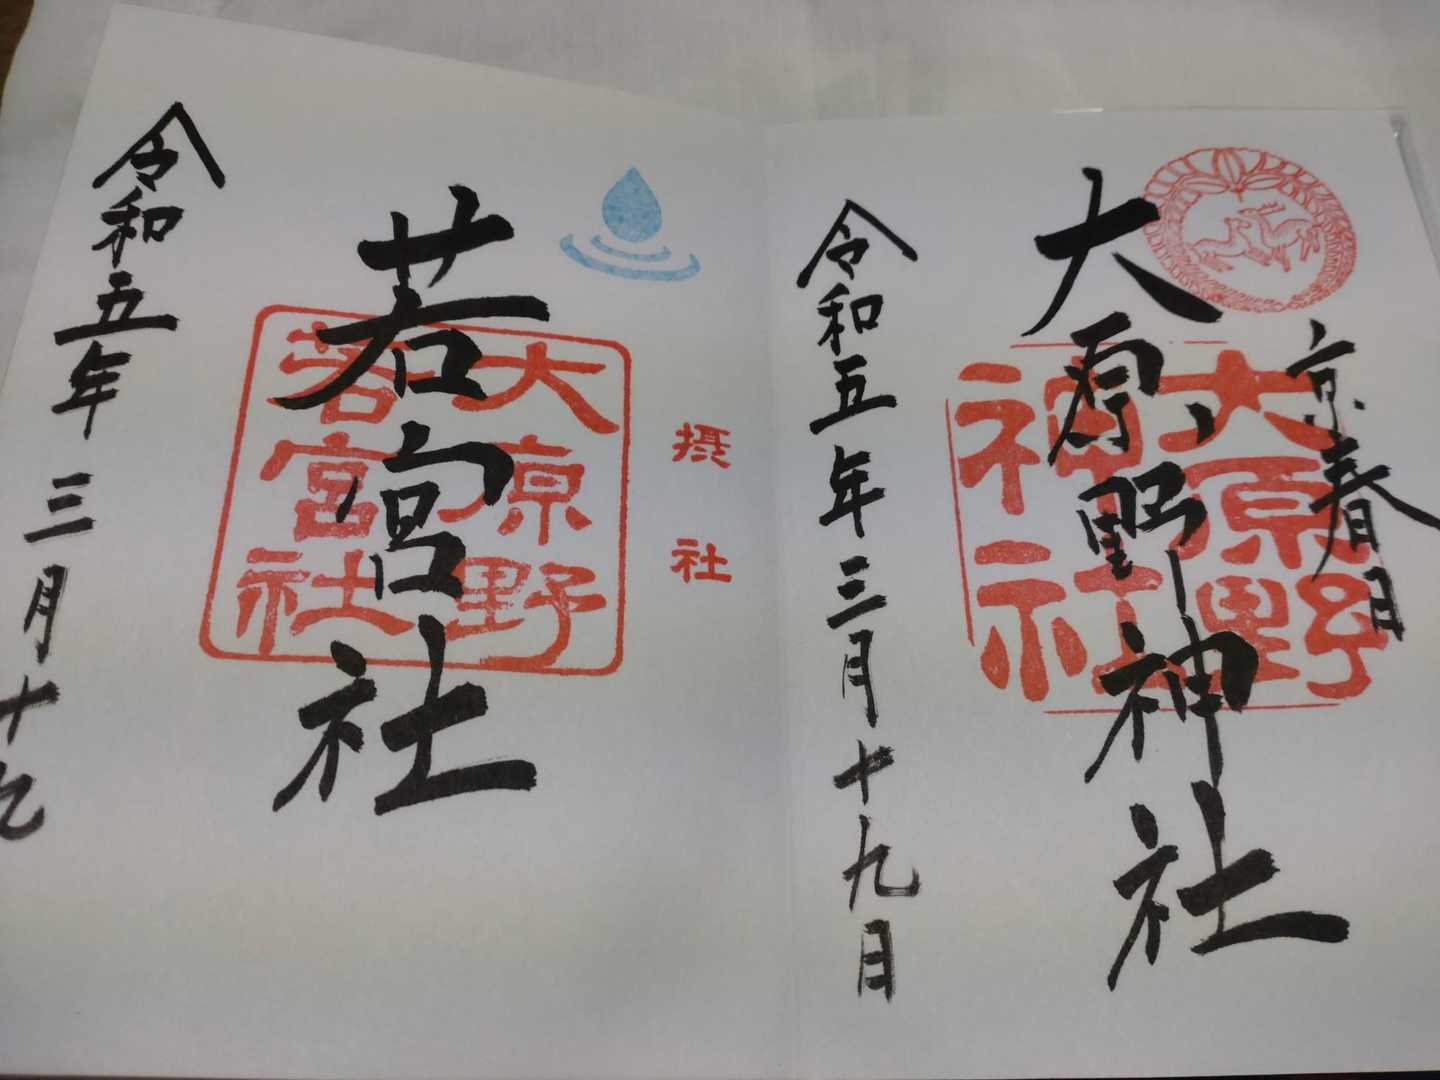 京春日
大原野神社
大原野
神社
令和五年三月十九日
摂社
大原野
若宮社
若宮社
令和五年三月十九